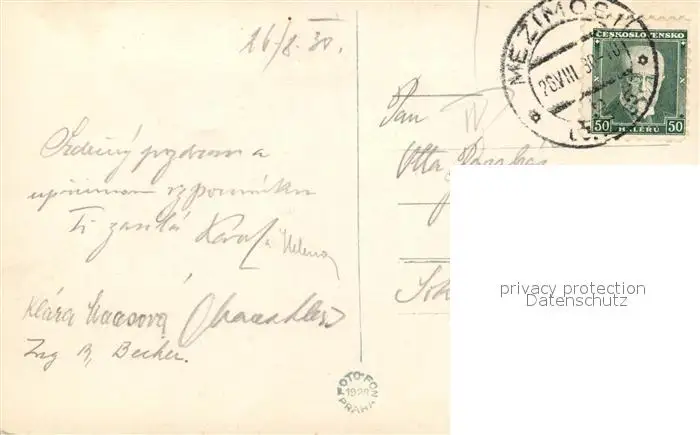 26/8.30.
Srdečný pozdrav a
upřímnou vzpomínku
Ti zasílá Karel a Helena
Klára Haasová
Ing R. Becher.
FOTO-FON
1928
PRAHA
MEZIMOSTÍ
26.VIII.30
ČESKOSLOVENSKO
50 50
HALÉŘŮ
Pan
Otta
privacy protection
Datenschutz